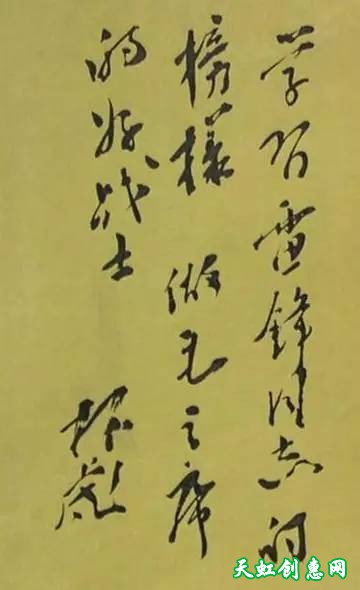 学習雷鋒同志的
榜樣 做毛主席
的好战士
林彪
天虹创惠网